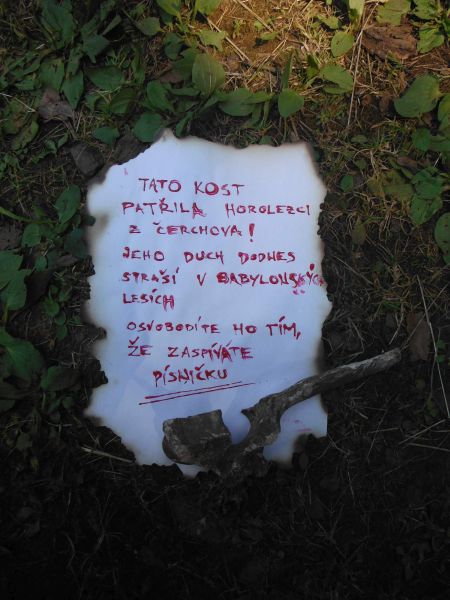 TATO KOST
PATŘILA HOROLEZCI
Z ČERCHOVA!
JEHO DUCH DODNES
STRAŠÍ V BABYLONSKÝCH
LESÍCH
OSVOBODÍTE HO TÍM,
ŽE ZASPÍVÁTE
PÍSNIČKU